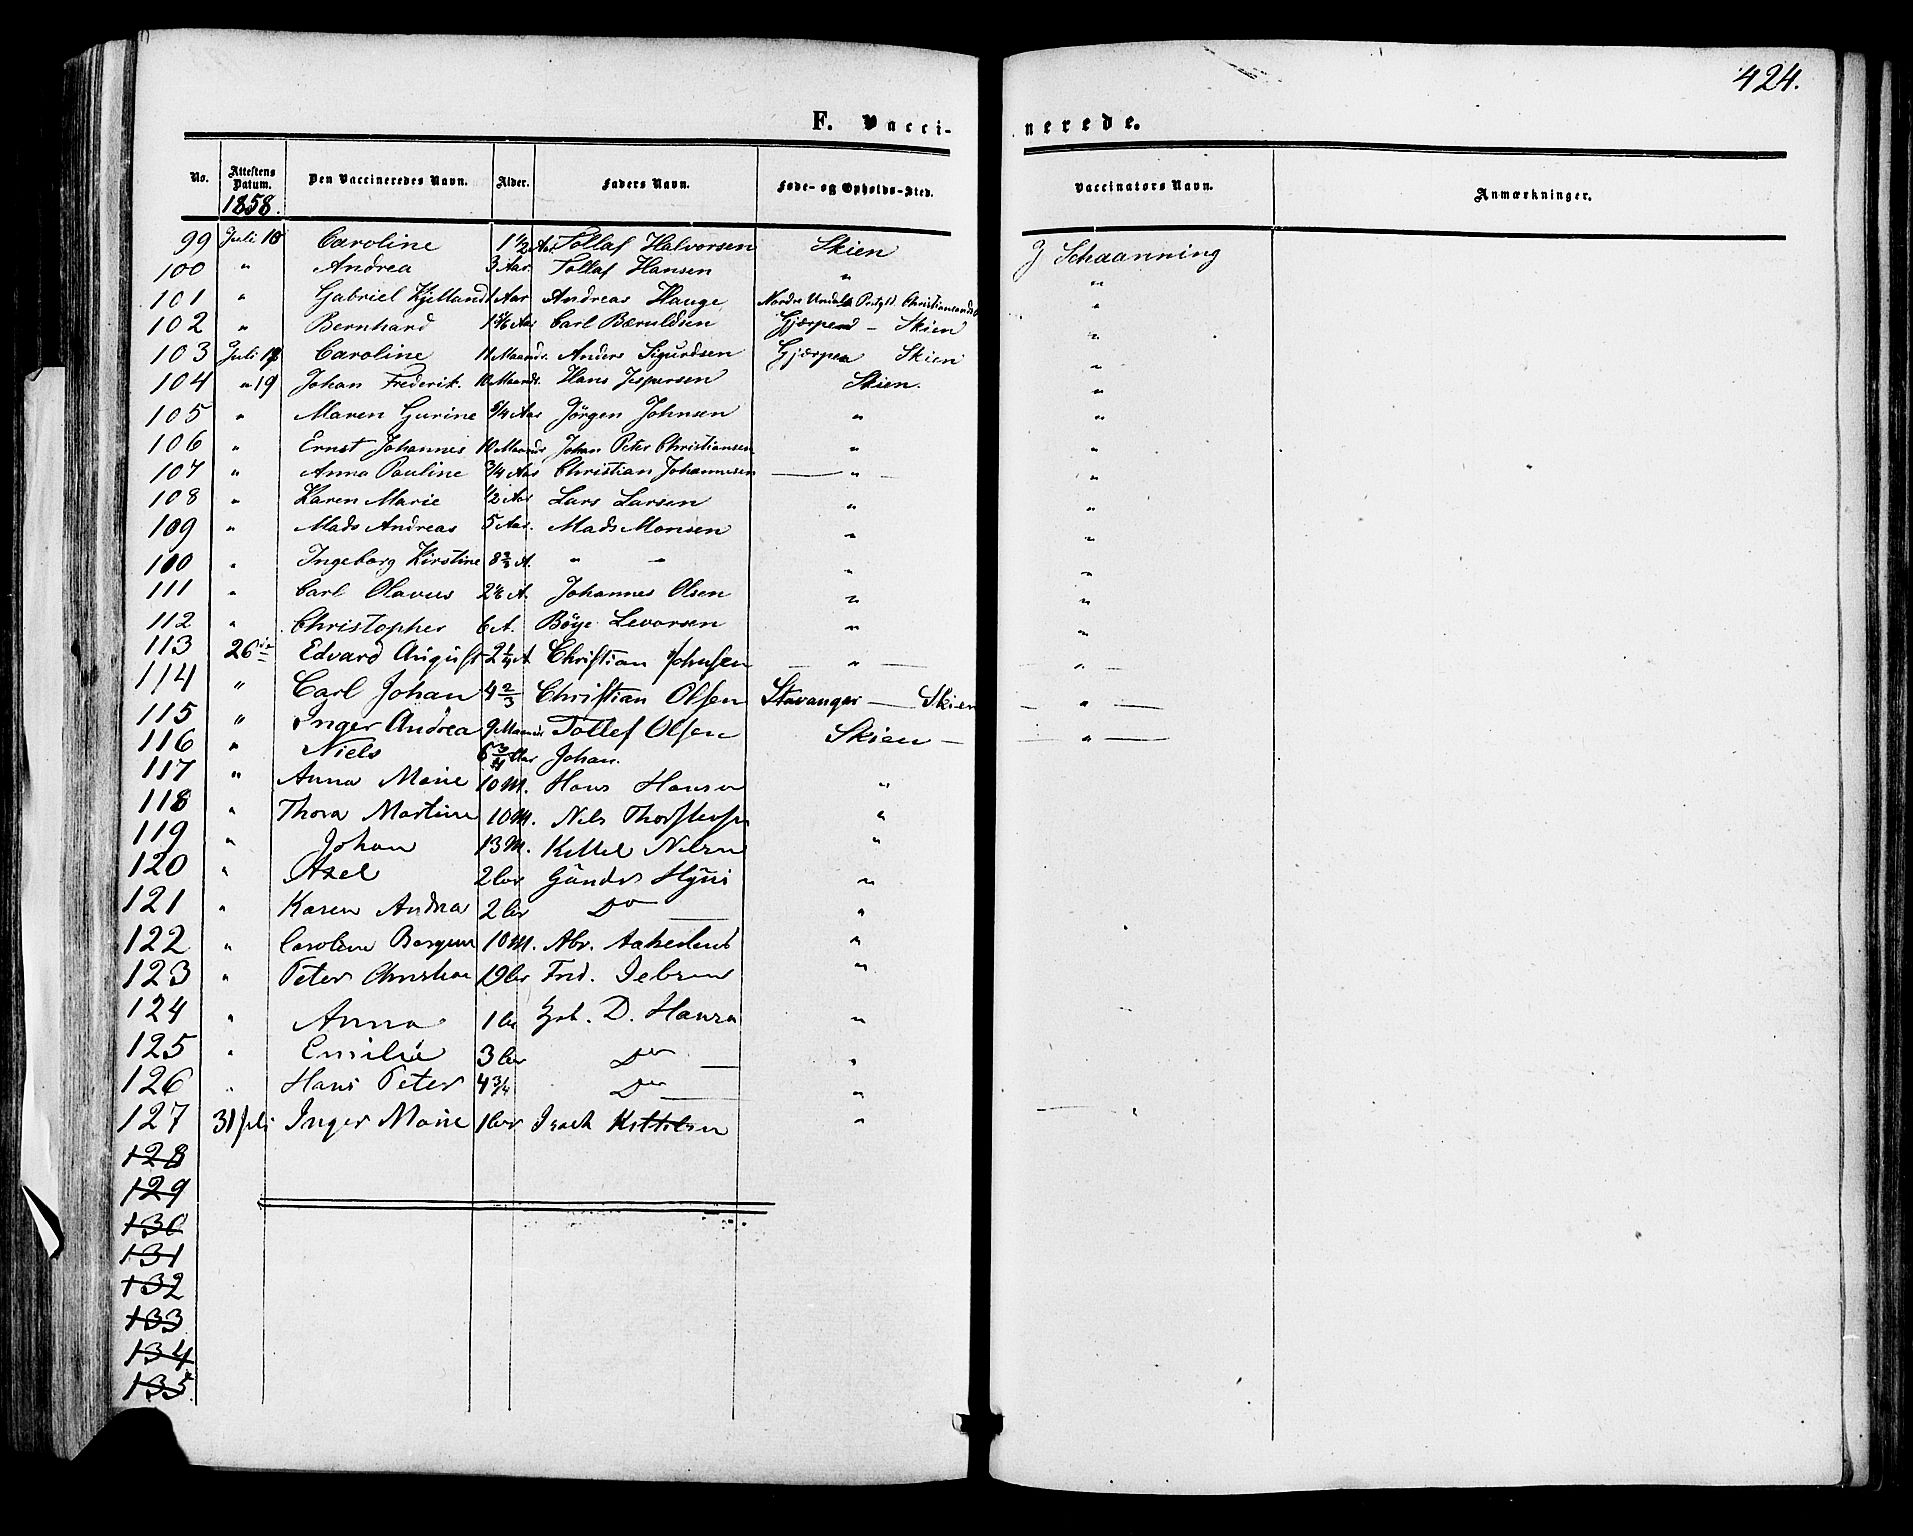 424.
F. Vaccinerede.
No. Attestens Datum. Den Vaccineredes Navn. Alder. Faders Navn. Føde- og Opholds-Sted. Vaccinators Navn. Anmærkninger.
1858.
99 Juli 10 Caroline 1 1/2 Aar Tollaf Halvorsen Skien J Schaanning
100 " Andrea 3 Aar. Tollaf Hansen " "
101 " Gabriel Kjelland 1 Aar Andreas Hauge Nordre Undals "
102 " Bernhard 1 5/6 Aar Carl Bæruldsen Gjærpen - Skien "
103 Juli Caroline 11 Maander Anders Sigurdsen Gjærpen Skien "
104 " 19 Johan Frederik. 10 Maander. Hans Jespersen Skien. "
105 " Maren Gurine 5/4 Aar Jörgen Johnsen " "
106 " Ernst Johannes 10 Maander Johan Peter Christiansen " "
107 " Anna Pauline 3/4 Aar Christian Johannesen — " — "
108 " Karen Marie 1/2 Aar Lars Larsen " "
109 " Mads Andreas 5 Aar. Mads Monsen " "
100 " Ingeborg Kirstine 8 2/3 A. " " " "
111 " Carl Olavus 2 1/6 A. Johannes Olsen " "
112 " Christopher 6 A. Böye Levorsen " "
113 26de Edvard August 2 1/4 A Christian Johnsen — " — " —
114 " Carl Johan 4 2/3 Christian Olsen Stavanger — Skien — " —
115 " Inger Andrea 9 Maander Tollef Olsen Skien — — " —
116 " Niels 6 3/4 Aar Johan.
117 " Anna Marie 10 M. Hans Hansen "
118 " Thora Martine 10 M. Nils Thorstensen "
119 " Johan 13 M. Kittel Nilsen "
120 " Axel 2 Aar Gunder "
121 " Karen Andrea 2 Aar Do — "
122 " Caroline 10 M. Abr. "
123 " Peter Christian Aar Fred. "
124 " Anna 1 Aar D. Hansen "
125 " Emilie 3 Aar Do — "
126 " Hans Peter 4 3/4 Do — "
127 31 Juli Inger Marie 1 Aar Isach Kittelsen "
128
129
130
131
132
133
134
135